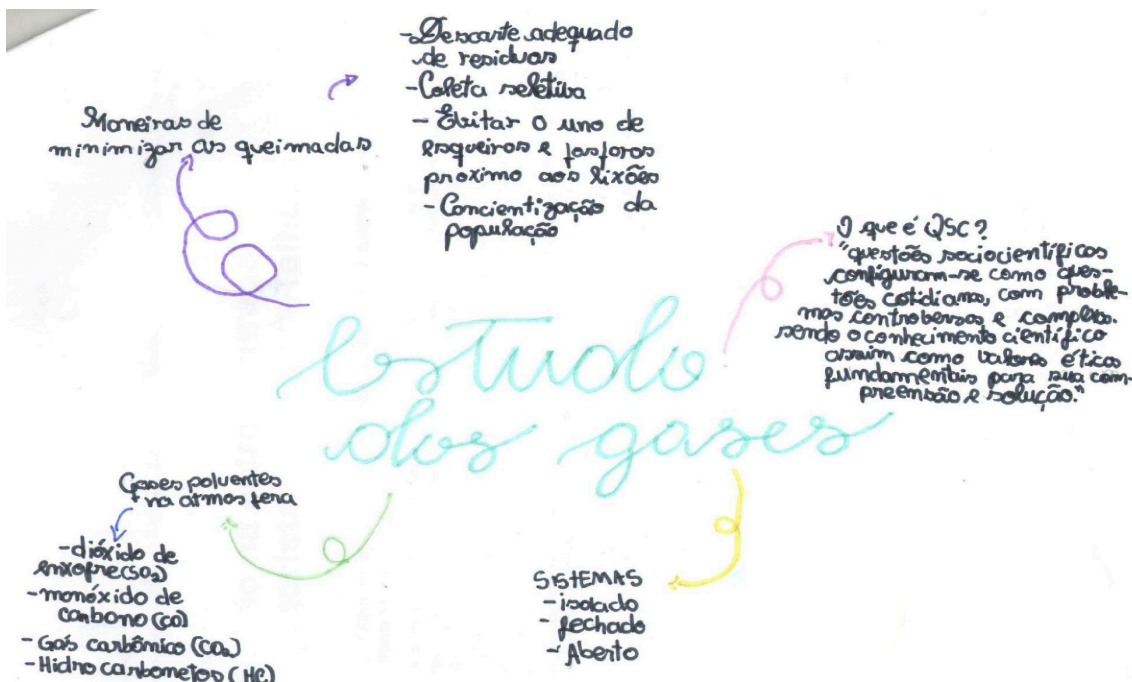 -Descarte adequado
de residuos
-Coleta seletiva
-Evitar o uno de
esqueiros e fosforos
proximo aos lixões
-Concientização da
população
Maneiras de
minimizar as queimadas
O que é QSC?
"questões sociocientíficas
configuram-se como ques-
tões cotidiana, com proble-
mas controbersos e complexo.
sendo o conhecimento científico
assim como valores éticos
fundamentais para sua com-
preensão e solução."
Estudo
dos gases
Gases poluentes
na atmosfera
-dióxido de
enxofre(SO₂)
-monóxido de
carbono (CO)
-Gás carbônico (CO₂)
-Hidrocarbonetos (HC)
SISTEMAS
-isolado
-fechado
-Aberto